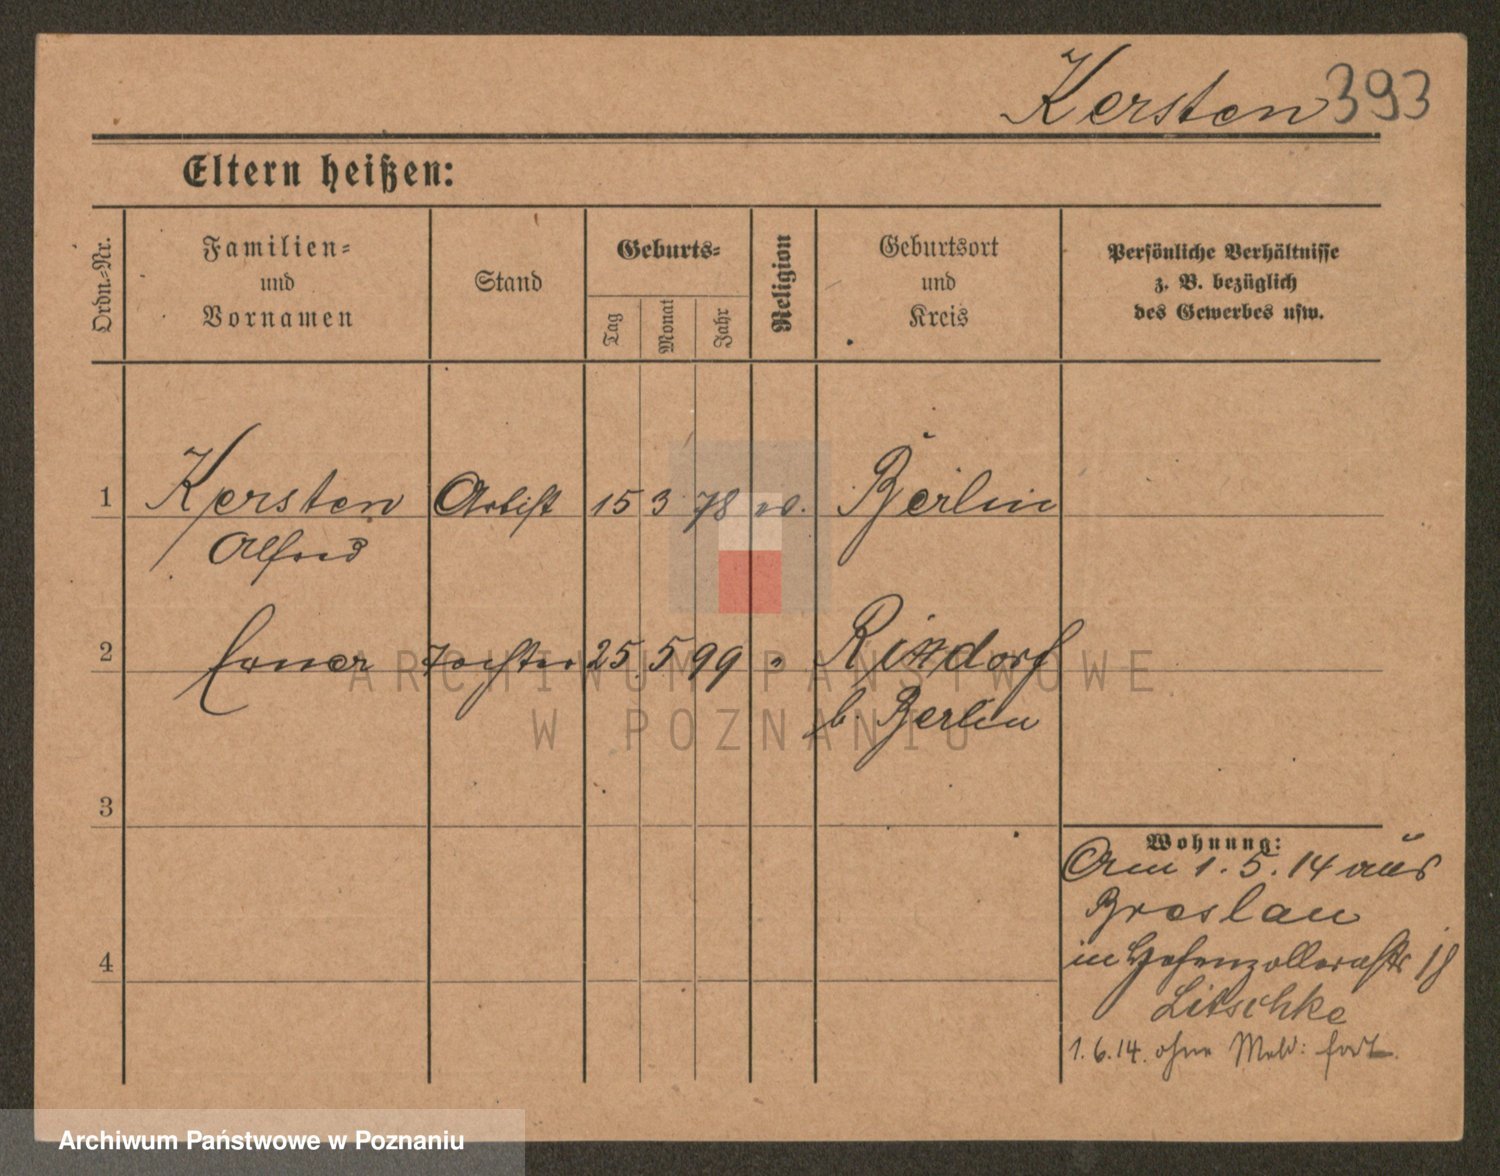 Kersten 393
Eltern heißen:
Ordn.-Nr.
Familien-
und
Vornamen
Stand
Geburts-
Tag
Monat
Jahr
Religion
Geburtsort
und
Kreis
Persönliche Verhältnisse
z. B. bezüglich
des Gewerbes usw.
1 Kersten Artist 15 3 78 ev. Berlin
Alfred
2 Erna Tochter 25. 5 99 " Rixdorf
b. Berlin
3
4
Wohnung:
Am 1. 5. 14 aus
Breslau
in Hohenzollernstr 18
Litschke
1. 6. 14. ohne Meld: fort.
ARCHIWUM PAŃSTWOWE
W POZNANIU
Archiwum Państwowe w Poznaniu